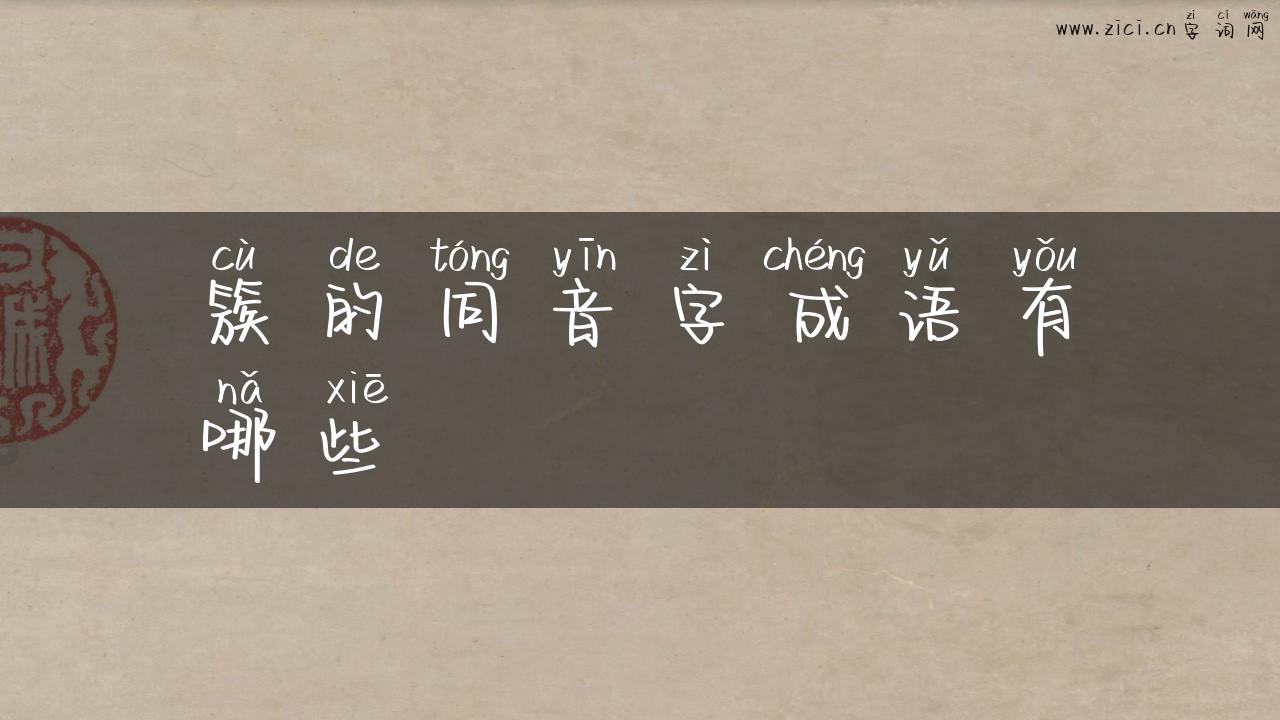 zì cí wǎng
www.zici.cn 字词网
cù de tóng yīn zì chéng yǔ yǒu
簇的同音字成语有
nǎ xiē
哪些